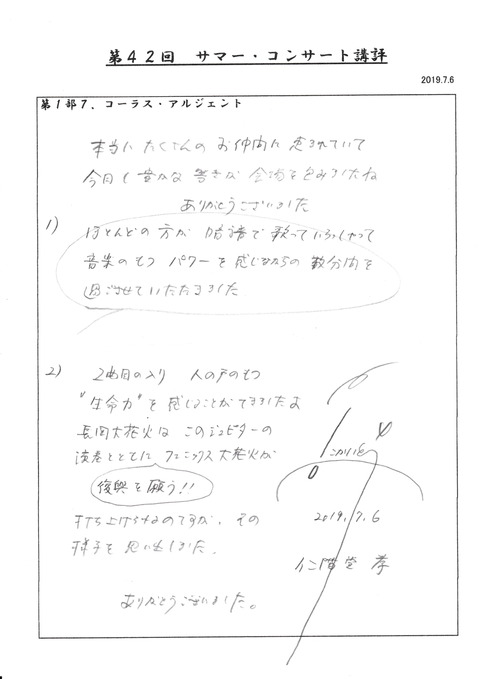 第42回 サマー・コンサート講評
2019.7.6
第1部7. コーラス・アルジェント
本当に たくさんの お仲間に 恵まれていて
今日も 豊かな 響きが 会場を包みましたね
ありがとうございました
1) ほとんどの 方が 暗譜で 歌っていらっしゃって
音楽のもつ パワーを 感じながらの 数分間を
過ごさせていただきました
2) 2曲目の入り 人の声のもつ
"生命力" を 感じることができましたよ
長岡大花火は このジュピターの
演奏とともに フェニックス 大花火が
復興を願う!!
打ち上げられるのですが、その
様子を 思い出しました。
ありがとうございました。
2019.7.6
仁階堂 孝